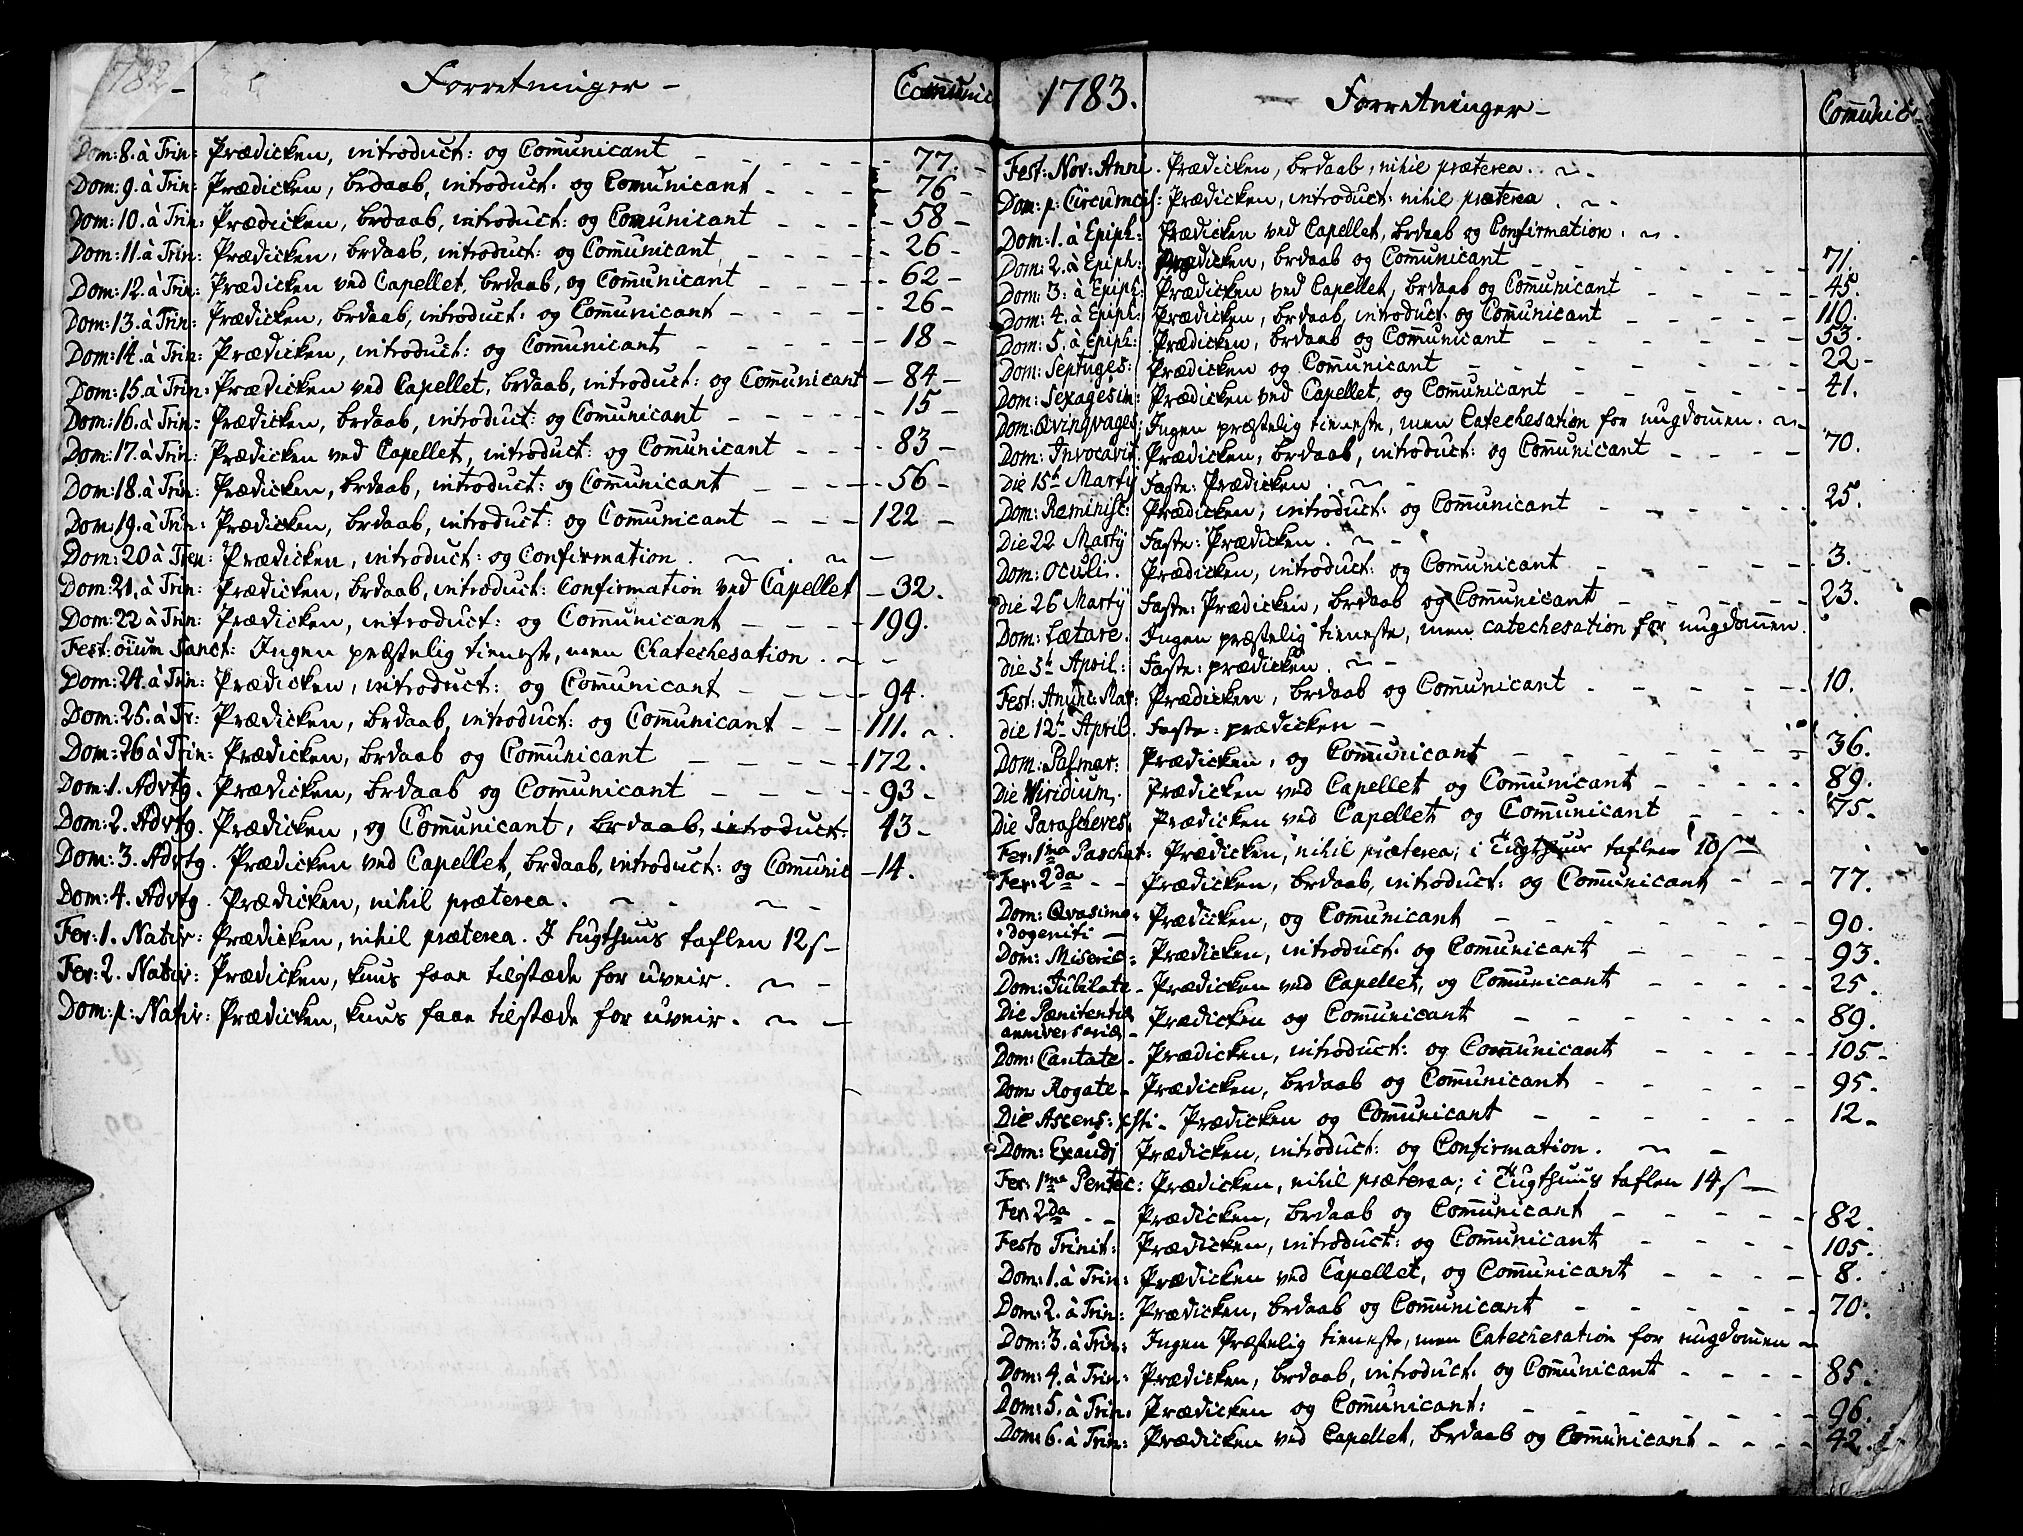 1782 - Forretninger - Com̄unic
Dom: 8. à Trin: Prædicken, introduct: og Com̄unicant - - - - - - 77. -
Dom: 9. à Trin: Prædicken, brdaab, introduct: og Comunicant - - - - 76 -
Dom: 10. à Trin: Prædicken, brdaab, introduct: og Comunicant - - - - 58 -
Dom: 11. à Trin: Prædicken, brdaab, introduct: og Com̄unicant - - - - - 26 -
Dom: 12. à Trin: Prædicken ved Capellet, brdaab, og Com̄unicant - - - - 62 -
Dom: 13. à Trin: Prædicken, brdaab, introduct: og Com̄unicant - - - - - 26 -
Dom: 14. à Trin: Prædicken, introduct: og Com̄unicant - - - - - - 18 -
Dom: 15. à Trin: Prædicken ved Capellet, brdaab, introduct: og Com̄unicant - 84 -
Dom: 16. à Trin: Prædicken, brdaab, introduct: og Com̄unicant - - - - - 15 -
Dom: 17. à Trin: Prædicken ved Capellet, introduct: og Com̄unicant - - - - 83 -
Dom: 18. à Trin: Prædicken, brdaab, introduct: og Com̄unicant - - - - - 56 -
Dom: 19. à Trin: Prædicken, brdaab, introduct: og Com̄unicant - - - 122 -
Dom: 20 à Trin: Prædicken, introduct: og Confirmation. ~ . ~ -
Dom: 21. à Trin: Prædicken, brdaab, introduct: Confirmation ved Capellet - 32.
Dom: 22 à Trin: Prædicken, introduct: og Com̄unicant - - - - 199.
Fest: om̄ium Sanct: Ingen præstelig tieneste, men Chatechesation. ~ -
Dom: 24. à Trin: Prædicken, introduct: og Com̄unicant - - - - 94.
Dom: 25. à Tr: Prædicken, brdaab, introduct: og Com̄unicant - - 111. ~.
Dom: 26 à Trin: Prædicken, brdaab og Com̄unicant - - - - - 172.
Dom: 1. Advtg. Prædicken, brdaab og Com̄unicant - - - - - 93 -
Dom: 2. Advtg. Prædicken, og Com̄unicant, brdaab, introduct: 43 -
Dom: 3. Advtg. Prædicken ved Capellet, brdaab, introduct: og Com̄unic - 14.
Dom: 4. Advtg. Prædicken, nihil præterea. ~ - ~ -
Fer: 1. Nativ: Prædicken, nihil præterea. I tugthuus taflen 12 ſ -
Fer: 2. Nativ: Prædicken, kuns faae tilstæde for uveir. ~ -
Dom: p: Nativ: Prædicken, kuns faae tilstæde for uveir. ~ -
1783. Forretninger - Com̄unic -
Fest: Nov: Anni. Prædicken, brdaab, nihil præterea. . ~ -
Dom: p: Circumcis: Prædicken, introduct: nihil præterea . ~ -
Dom: 1. à Epiph: Prædicken ved Capellet, brdaab og Confirmation . ~ .
Dom: 2. à Epiph: Prædicken, brdaab og Com̄unicant - - - - - - 71.
Dom: 3. à Epiph: Prædicken ved Capellet, brdaab og Com̄unicant - - - - 45.
Dom: 4. à Epiph: Prædicken, brdaab, introduct: og Com̄unicant - - - - - 110.
Dom: 5. à Epiph: Prædicken, brdaab og Com̄unicant - - - - - - 53.
Dom: Septuges: Prædicken og Com̄unicant - - - - - - - 22 -
Dom: Sexagesin: Prædicken ved Capellet, og Com̄unicant - - - - - 41.
Dom: Qvinqvages: Ingen præstelig tieneste, men Catechesation for ungdom̄en. ~
Dom: Invocavit. Prædicken, brdaab, introduct: og Com̄unicant - - - - 70.
Die 15t Martÿ Faste: Prædicken . ~ -
Dom: Reminisc: Prædicken, introduct: og Com̄unicant - - - - - 25.
Die 22 Martÿ Faste: Prædicken . ~ -
Dom: Oculi. Prædicken, introduct: og Com̄unicant - - - - - - 3.
Die 26 Martÿ Faste: Prædicken, brdaab og Com̄unicant - - - - - 23.
Dom: Lætare. Ingen præstelig tieneste, men catechesation for ungdom̄en.
Die 5t April: Faste: prædicken . ~ -
Fest: Anunc: Mar: Prædicken, brdaab og Com̄unicant - - - - - - 10.
Die 12t April. Faste: prædicken -
Dom: Palmar: Prædicken, og Com̄unicant - - - - - - - 36.
Die Viridium, Prædicken ved Capellet og Com̄unicant - - - - - 89.
Die Parasceves, Prædicken ved Capellet og Com̄unicant - - - - 75.
Fer: 1ma Paschat: Prædicken, nihil præterea; i Tugthuus taflen 10 ſ -
Fer: 2da - - Prædicken, brdaab, introduct: og Com̄unicant - - - 77.
Dom: Qvasimo-
dogeniti - Prædicken, og Com̄unicant - - - - - - - 90.
Dom: Miseric: Prædicken, introduct: og Com̄unicant - - - - - 93.
Dom: Jubilate - Prædicken ved Capellet, og Com̄unicant - - - - - 25.
Die Pænitentiæ
anniversariæ - Prædicken og Com̄unicant - - - - - - 89.
Dom: Cantate - Prædicken, introduct: og Com̄unicant - - - - - 105 -
Dom: Rogate - Prædicken, brdaab og Com̄unicant - - - - - - 95 -
Die Ascens: Xsti - Prædicken og Com̄unicant - - - - - - 12 -
Dom: Exaudj Prædicken, introduct: og Confirmation . ~ -
Fer: 1ma Pentec: Prædicken, nihil præterea; i Tugthuus taflen 14 ſ -
Fer: 2da - - Prædicken, brdaab og Com̄unicant - - - - - - 82.
Festo Trinit: Prædicken, introduct: og Com̄unicant - - - - - 105.
Dom: 1. à Trin: Prædicken ved Capellet, og Com̄unicant - - - - - 8.
Dom: 2. à Trin: Prædicken, brdaab og Com̄unicant - - - - - - 70.
Dom: 3. à Trin: Ingen Præstelig tieneste, men Catechesation for ungdom̄en ~
Dom: 4. à Trin: Prædicken, brdaab, introduct: og Com̄unicant - - - - 85.
Dom: 5. à Trin: Prædicken og Com̄unicant: - - - - - - - - 96.
Dom: 6. à Trin: Prædicken ved Capellet, brdaab og Com̄unicant - - - - 42.